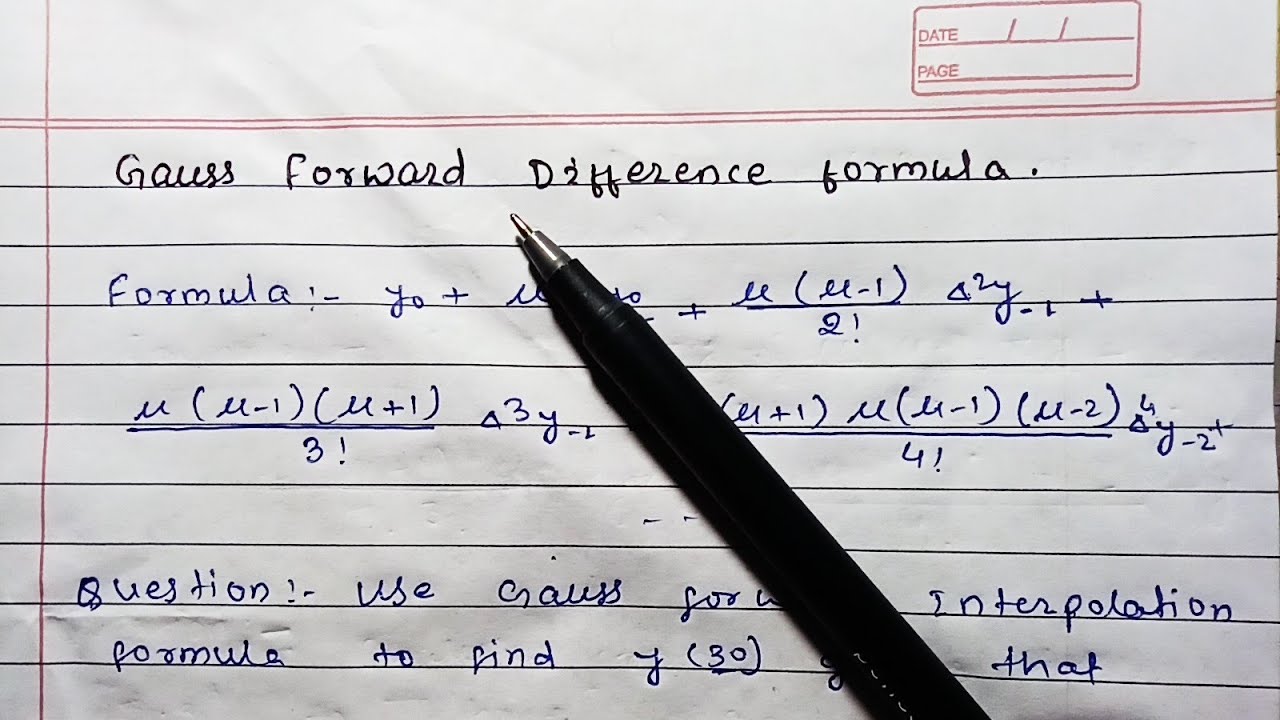 DATE / /
PAGE
Gauss Forward Difference formula.
Formula:- y₀ + u + u(u-1)/2! Δ²y₋₁ +
u(u-1)(u+1)/3! Δ³y₋₁ (u+1) u(u-1)(u-2)/4! Δ⁴y₋₂ +
- -
Question:- Use Gauss Interpolation
formula to find y(30) that